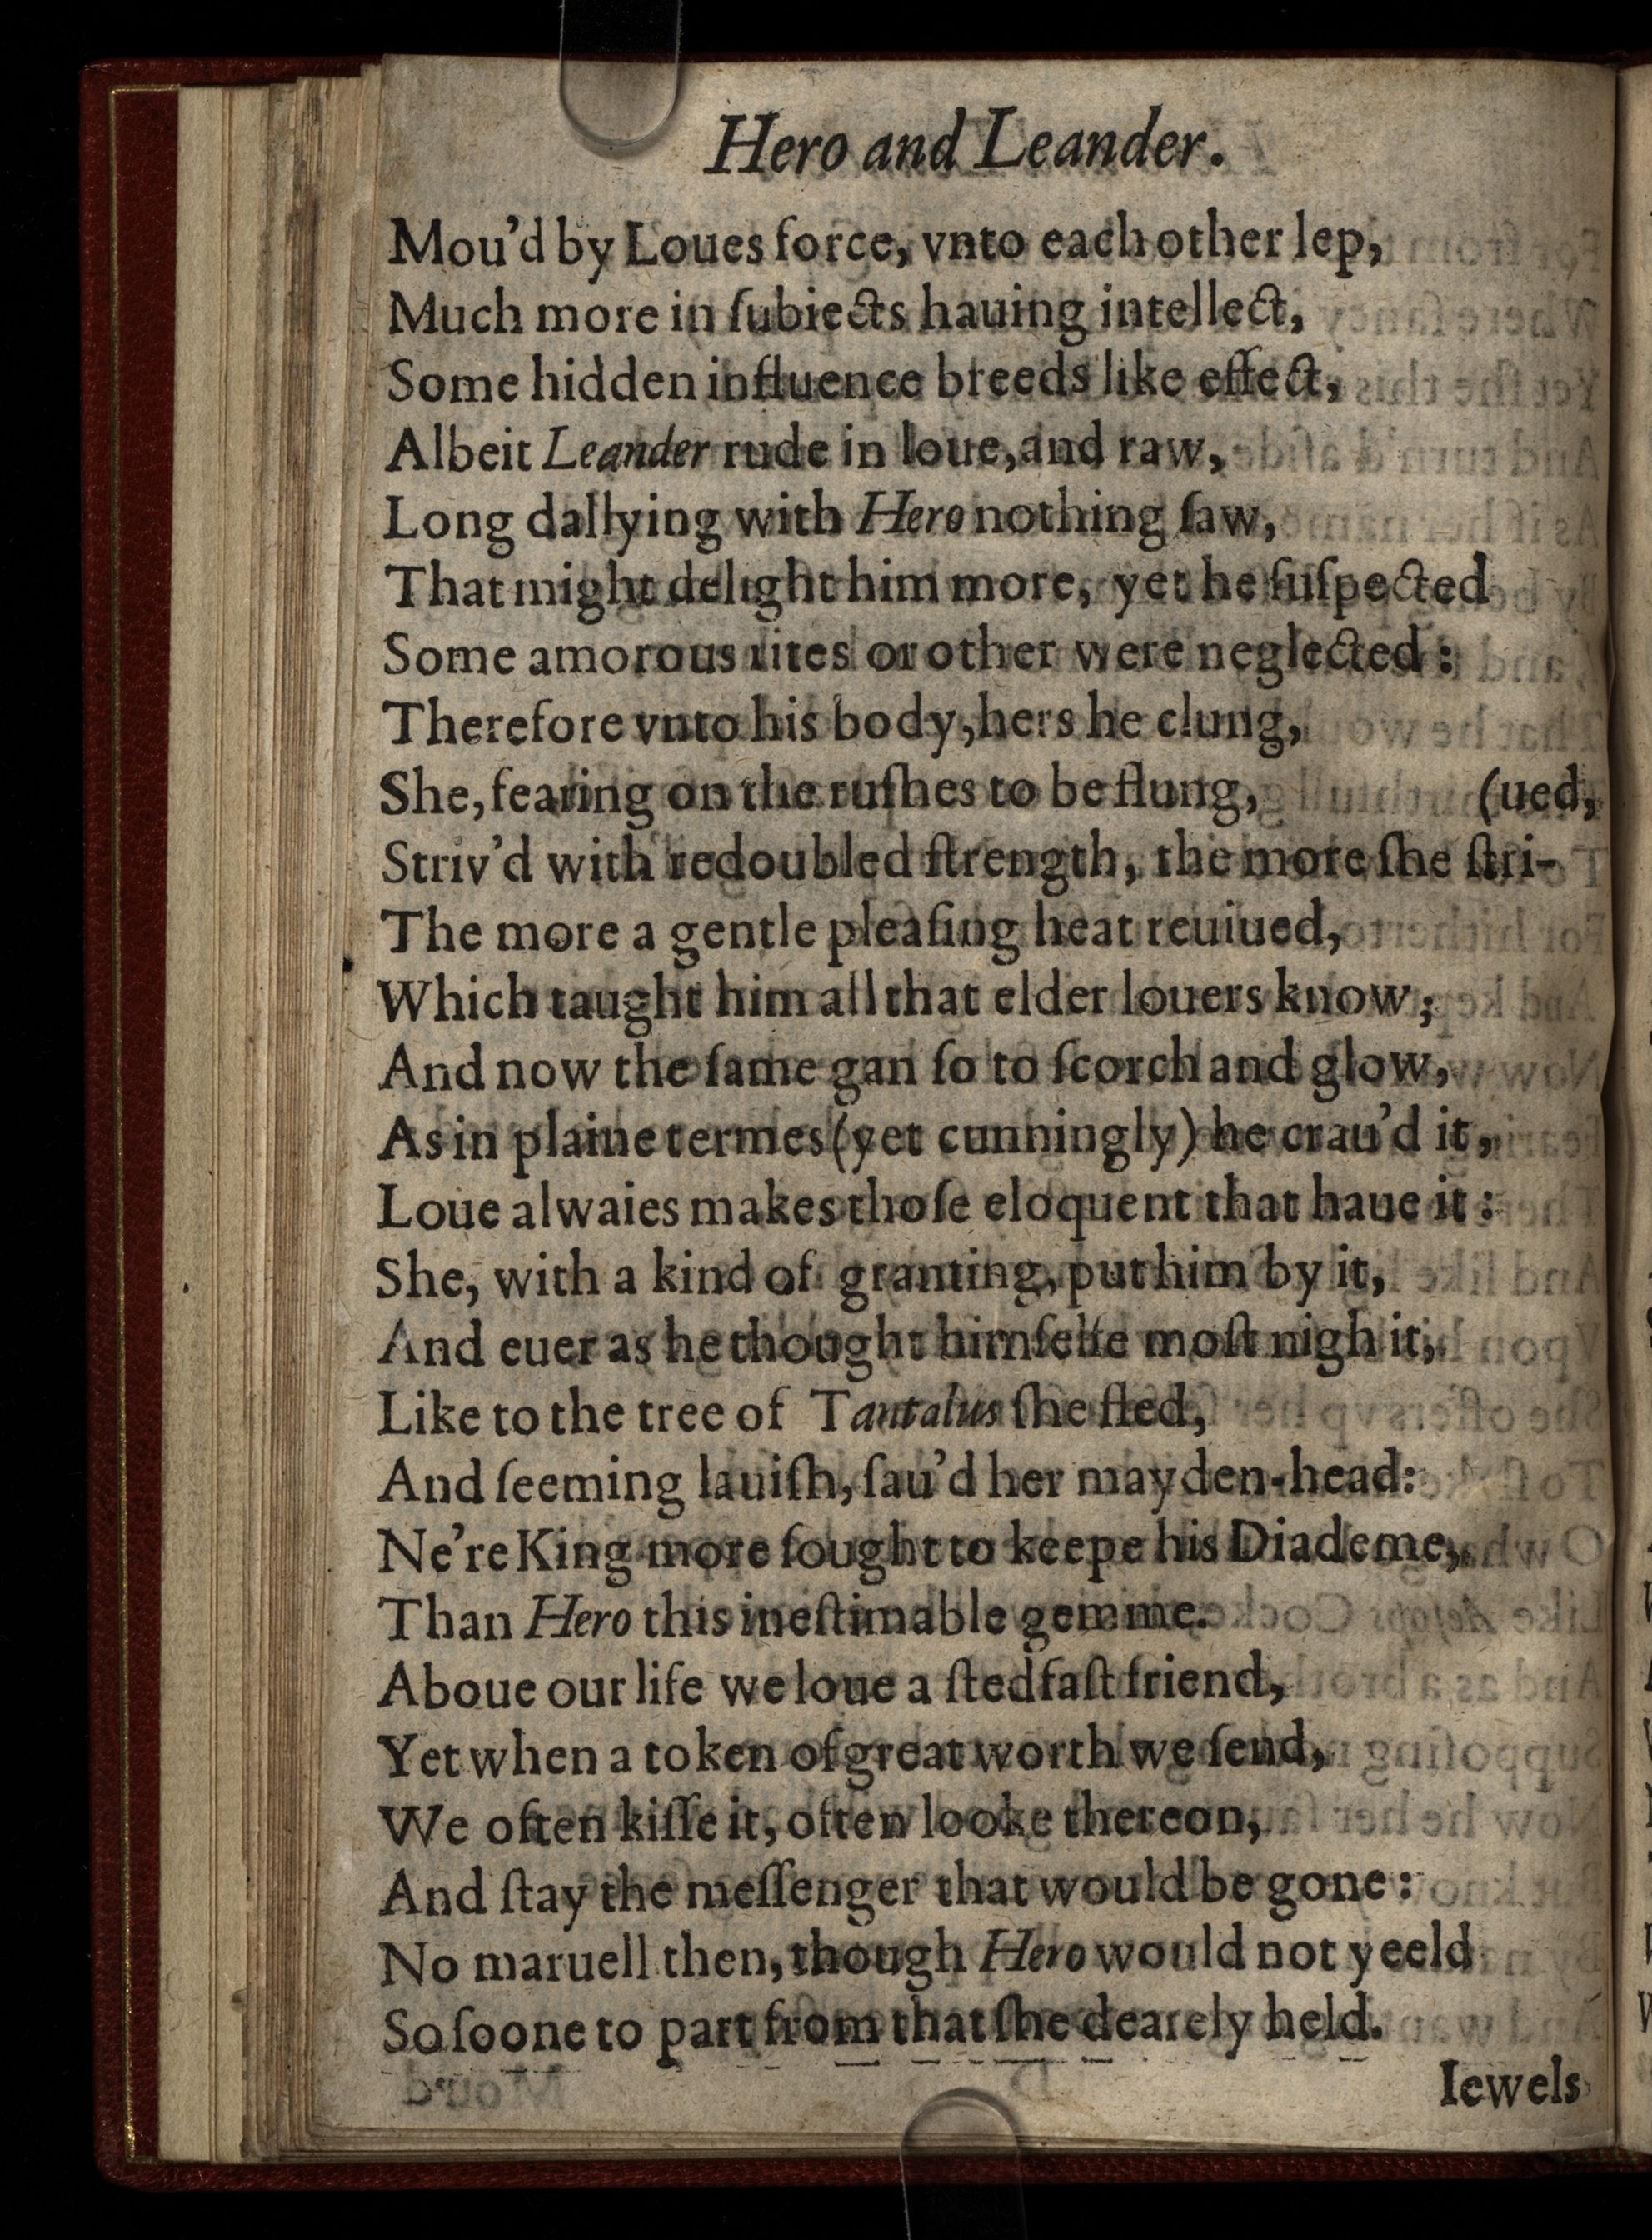 Hero and Leander.
Mou'd by Loues force, vnto each other lep,
Much more in ſubiects hauing intellect,
Some hidden influence breeds like effect,
Albeit Leander rude in loue, and raw,
Long dallying with Hero nothing ſaw,
That might delight him more, yet he ſuſpected
Some amorous rites or other were neglected:
Therefore vnto his body, hers he clung,
She, fearing on the ruſhes to be flung, (ued,
Striv'd with redoubled ſtrength, the more ſhe ſtri-
The more a gentle pleaſing heat reuiued,
Which taught him all that elder louers know;
And now the ſame gan ſo to ſcorch and glow,
As in plaine termes (yet cunningly) he crau'd it,
Loue alwaies makes thoſe eloquent that haue it:
She, with a kind of granting, put him by it,
And euer as he thought himſelfe moſt nigh it,
Like to the tree of Tantalus ſhe fled,
And ſeeming lauiſh, ſau'd her mayden-head:
Ne're King more ſought to keepe his Diademe,
Than Hero this ineſtimable gemme.
Aboue our life we loue a ſtedfaſt friend,
Yet when a token of great worth we ſend,
We often kiſſe it, often looke thereon,
And ſtay the meſſenger that would be gone:
No maruell then, though Hero would not yeeld
So ſoone to part from that ſhe dearely held.
Iewels